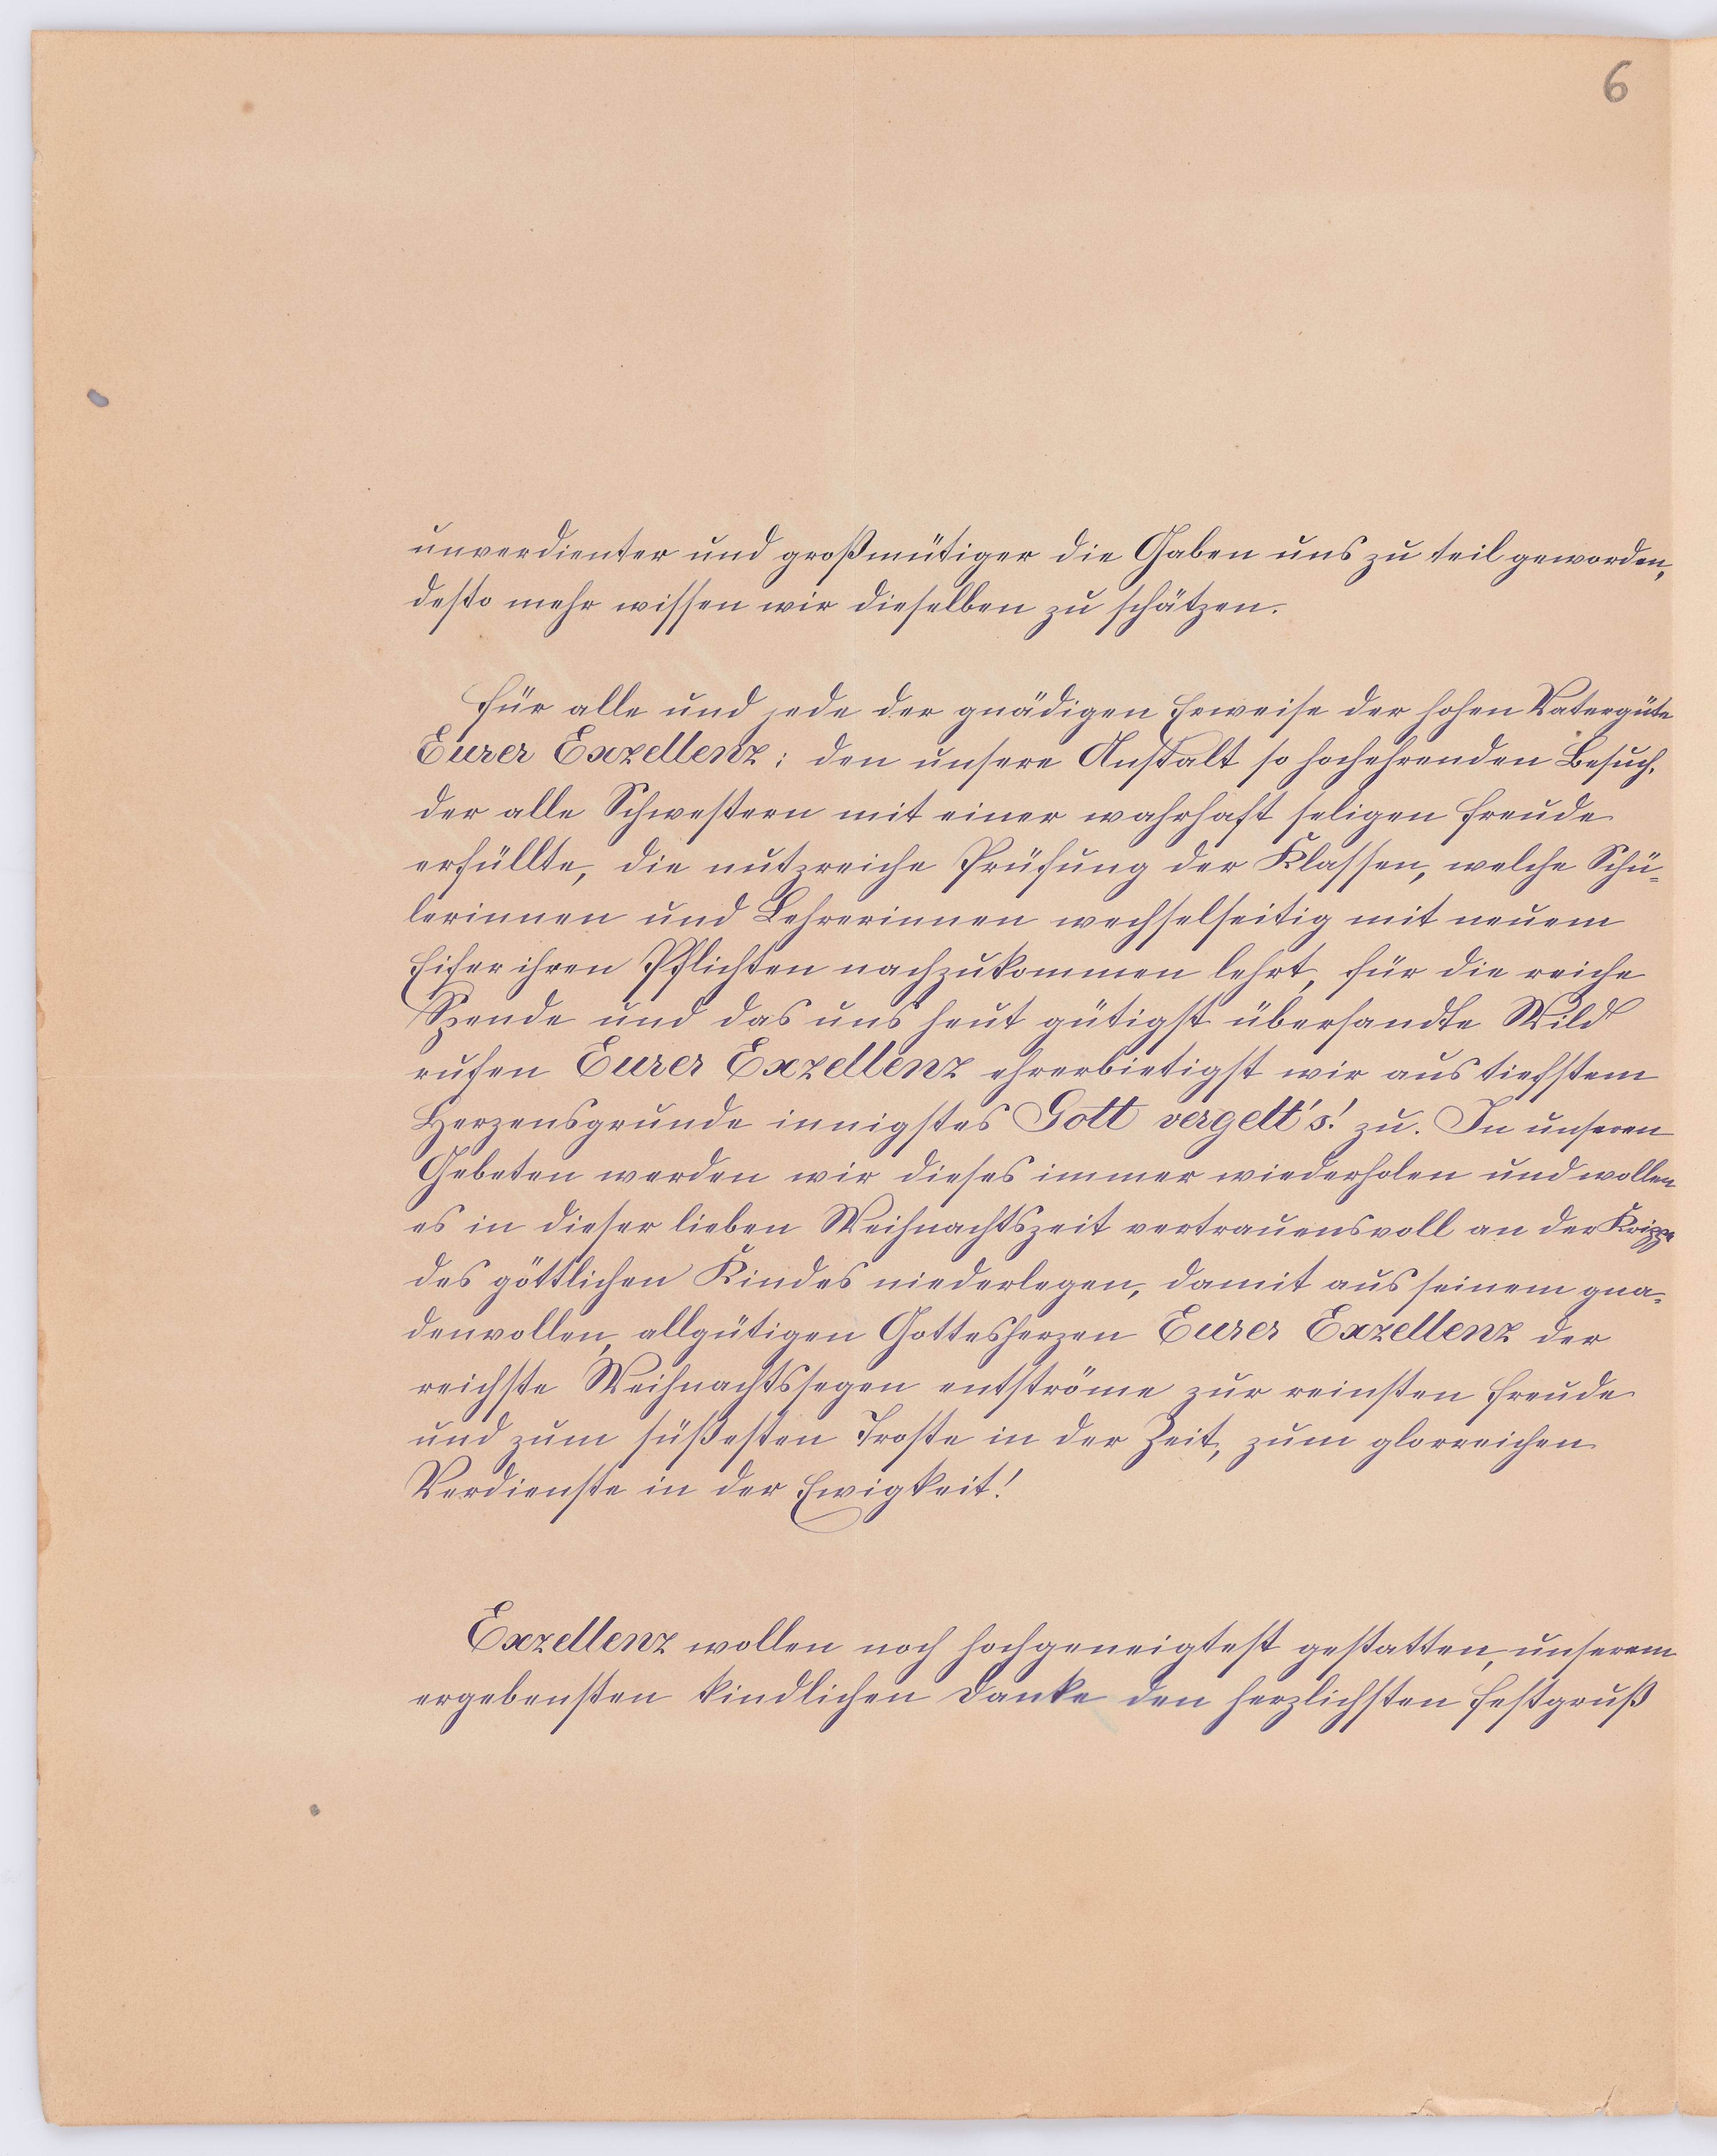 6
unverdienter und großmütiger die Gaben uns zu teil geworden,
desto mehr wissen wir dieselben zu schätzen.
Für alle und jede der gnädigen Erweise der hohen Vatergüte
Eurer Exzellenz; den unsere Anstalt so hochehrenden Besuch,
der alle Schwestern mit einer wahrhaft seligen Freude
erfüllte, die nutzreiche Prüfung der Klassen, welche Schü-
lerinnen und Lehrerinnen wechselseitig mit neuem
Eifer ihren Pflichten nachzukommen lehrt, für die reiche
Spende und das uns heut gütigst übersandte Wild
rufen Eurer Exzellenz ehrerbietigst wir aus tiefstem
Herzensgrunde innigstes Gott vergelt's! zu. In unseren
Gebeten werden wir dieses immer wiederholen und wollen
es in dieser lieben Weihnachtszeit vertrauensvoll an der Krippe
des göttlichen Kindes niederlegen, damit aus seinem gna-
denvollen, allgütigen Gottesherzen Eurer Exzellenz der
reichste Weihnachtssegen entströme zur reinsten Freude
und zum süßesten Troste in der Zeit, zum glorreichen
Verdienste in der Ewigkeit!
Exzellenz wollen noch hochgeneigtest gestatten, unserem
ergebensten kindlichen Danke den herzlichsten Festgruß